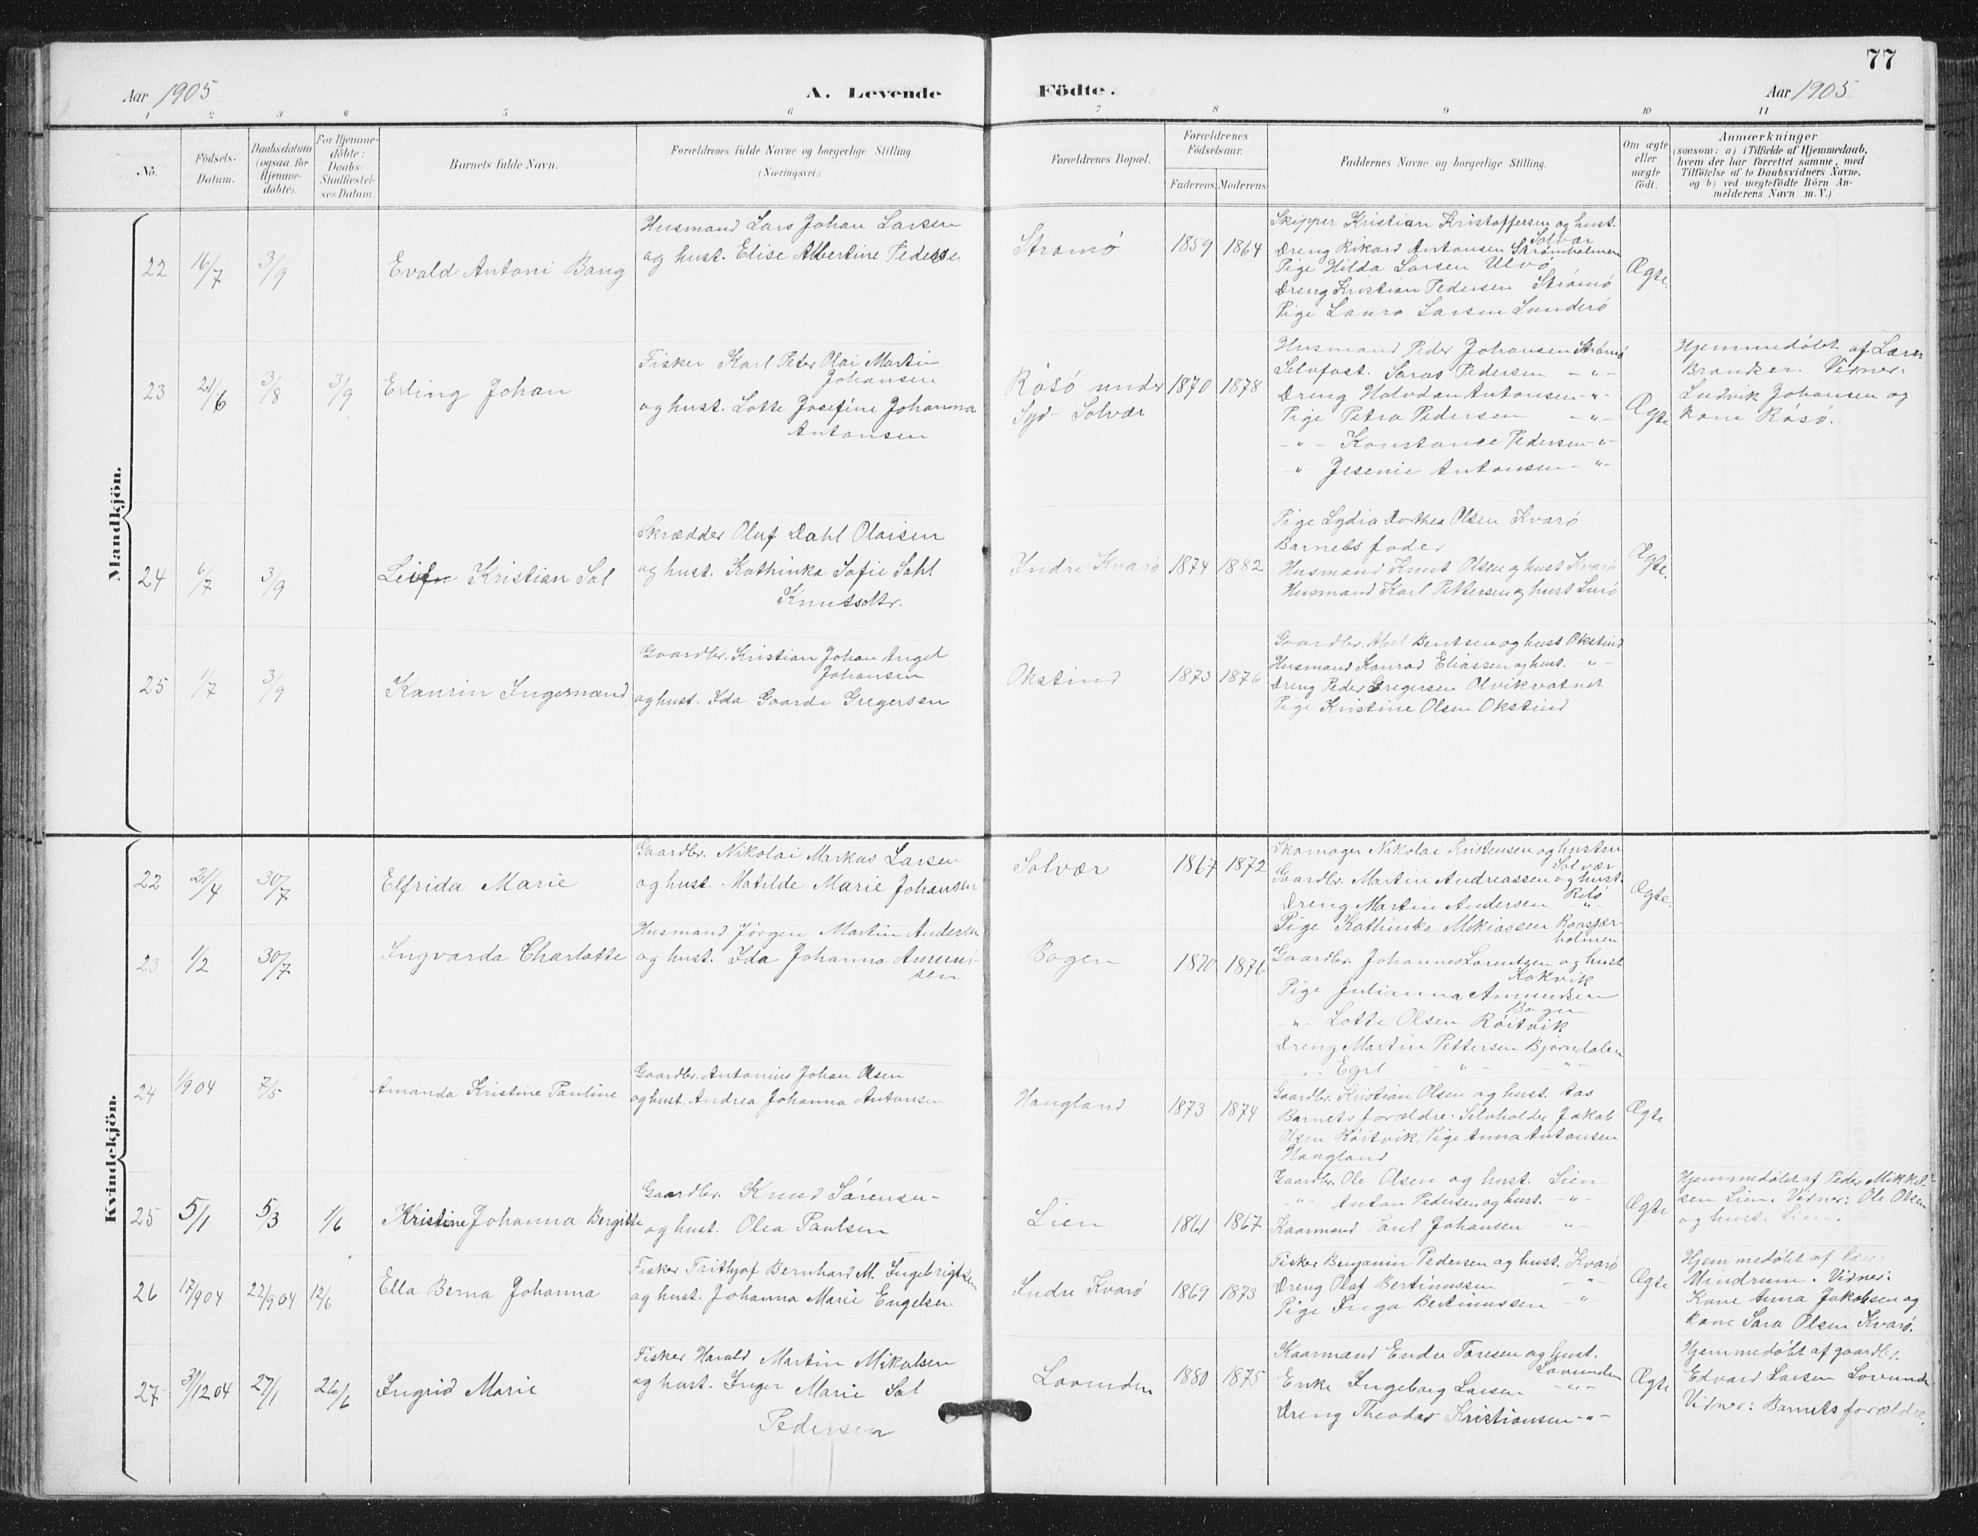 77
Aar 1905
A. Levende
Födte.
Aar 1905
1 2 3 4 5 6 7 8 9 10 11
No.
Födsels-
Datum.
Daabsdatum
(ogsaa for
Hjemme-
döbte).
For Hjemme-
döbte:
Daabs-
Stadfæstel-
ses Datum.
Barnets fulde Navn.
Forældrenes fulde Navne og borgerlige Stilling
(Næringsvei.)
Forældrenes Bopæl.
Forældrenes
Födselsaar.
Faderens. Moderens.
Faddernes Navne og borgerlige Stilling.
Om ægte
eller
uægte
födt.
Anmærkninger
(saasom: a) i Tilfælde af Hjemmedaab,
hvem der har forrettet samme, med
Tilföielse af to Daabsvidners Navne,
og b) ved uægtefödte Börn An-
melderens Navn m. V.)
Mandkjön.
22 16/7 3/9 Evald Antoni Bang
Husmand Lars Johan Larsen
og hust. Elise Albertine Pedersen
Stromö 1859 1864
Skipper Kristian Kristoffersen og hust.
Solvær
Dreng Rikard Antonsen Strömholmen
Pige Hilda Larsen Ulvö
Dreng Kristian Pedersen Strömö
Pige Laura Larsen Sunderö
Ægte.
23 21/6 3/8 3/9 Erling Johan
Fisker Karl Peter Olai Martin
Johansen
og hust. Lotte Josefine Johanna
Antonsen
Røsö under
Syd-Solvær
1870 1878
Husmand Peder Johansen Strömö
Selvfost. Saras Pedersen -"-
Dreng Halvdan Antonsen -"-
Pige Petra Pedersen -"-
-"- Konstance Pedersen -"-
-"- Jesenie Antonsen -"-
Ægte
Hjemmedöbt af Lærer
Brandser. Vidner:
Ludvik Johansen og
kone Røsö.
24 6/7 3/9 Leif Kristian Sol
Skrædder Oluf Dahl Olaisen
og hust. Kathinka Sofie Dahl
Knutsdtr.
Indre Kvarö 1874 1882
Pige Lydia Dorthea Olsen Kvarö
Barnets fader
Husmand Knut Olsen og hust Kvarö
Husmand Karl Pettersen og hust Lurö
Ægte.
25 1/7 3/9 Kanrin Ingemand
Gaardbr. Kristian Johan Angel
Johansen
og hust. Ida Gaarde Gregersen
Okstind 1873 1876
Gaardbr. Abel Bentsen og hust Okstind
Husmand Konrad Eliassen og hust. -"-
Dreng Peder Gregersen Olvikvatnet
Pige Kristine Olsen Okstind
Kvindekjön.
22 21/4 30/7 Elfrida Marie
Gaardbr. Nikolai Markus Larsen
og hust. Matilde Marie Johansen
Solvær 1867 1872
Skomager Nikolai Kristensen og hustru
Solvær
Gaardbr. Martin Andreassen og hust.
Dreng Martin Andersen
Ægte.
23 1/2 30/7 Ingvarda Charlotte
Husmand Jörgen Martin Andersen
og hust. Ida Johanna Amund-
sen
Bogen 1870 1876
Pige Kathinka Mikiassen
holmen
Gaardbr. Johannes Lorentzen og hust
Kokvik
Pige Julianna Amundsen
Bogen
-"- Lotte Olsen Röitvik
Dreng Martin Pettersen Bjørndalen
24 1/9 04 7/5 Amanda Kristine Pauline
Gaardbr. Antonius Johan Olsen
og hust. Andrea Johanna Antonsen
Haugland 1873 1874
Gaardbr. Kristian Olsen og hust. Aas
Barnets forældre. Selvholder Jakob
Olsen Röitvik, Pige Anna Antonsen
Haugland
Ægte
25 5/1 5/3 1/6 Kristine Johanna Bergitte
Gaardbr. Knud Sörensen
og hust. Olea Paulsen
Lien 1861 1867
Gaardbr. Ole Olsen og hust. Lien
-"- Anton Pedersen og hust. -"-
Kaarmand Paul Johansen -"-
Ægte
Hjemmedöbt af Peder Mikkel-
sen Lien. Vidner: Ole Olsen
og hust. Lien.
26 17/9 04 22/9 04 12/6 Ella Berna Johanna
Fisker Frithjof Bernhard M. Ingebrigtsen
og hust. Johanna Marie Engelsen
Indre Kvarö 1869 1873
Fisker Benjamin Pedersen og hust. Kvarö
Dreng Olaf Bertinussen -"-
Pige Inga Bertinussen -"-
Ægte
Hjemmedöbt af
Mindrum. Vidner:
Kone Anna Jakobsen og
kone Sara Olsen Kvarö.
27 31/12 04 27/1 26/6 Ingrid Marie
Fisker Harald Martin Mikalsen
og hust. Inger Marie Sol
Pedersen
Lovunden 1880 1875
Kaarmand Endre Toresen og hust.
Lovunden
Enke Ingeborg Larsen -"-
Dreng Theodor Kristiansen -"-
Ægte
Hjemmedöbt af gaardbr.
Edvard Larsen Lovunden
Vidner: Barnets forældre.